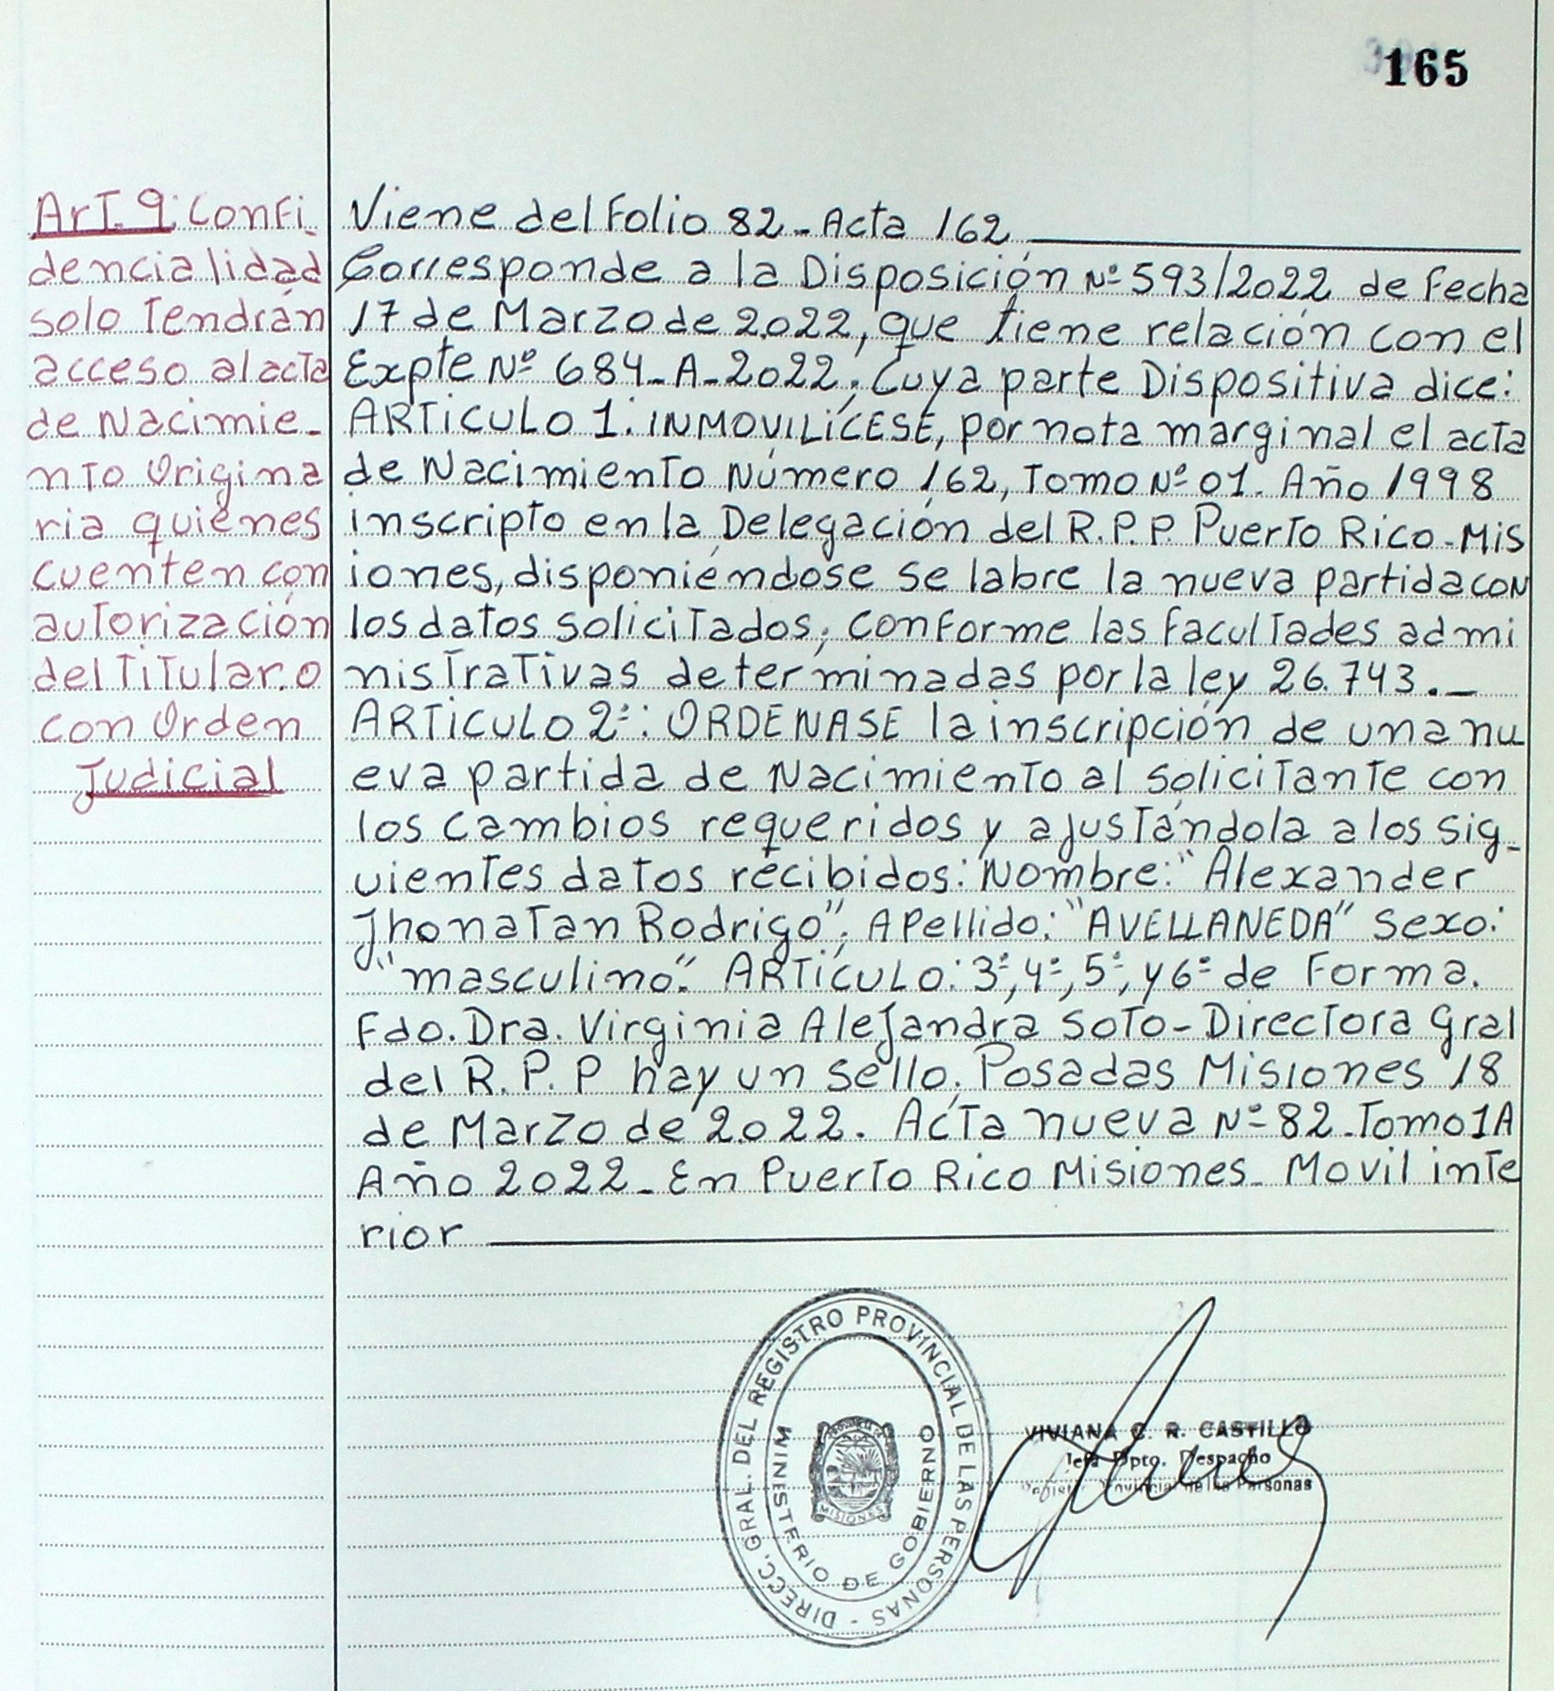 165
Art. 9: Confi_
dencialidad
solo Tendrán
acceso al acta
de Nacimie_
nto Origina
ria quienes
cuenten con
autorización
del Titular. o
con Orden
Judicial
Viene del Folio 82 - Acta 162
Corresponde a la Disposición Nº 593/2022 de Fecha
17 de Marzo de 2022, que tiene relación con el
Expte Nº 684-A-2022, Cuya parte Dispositiva dice:
ARTICULO 1: INMOVILÍCESE, por nota marginal el acta
de Nacimiento Número 162, Tomo Nº 01. Año 1998
inscripto en la Delegación del R.P.P. Puerto Rico-Mis
iones, disponiéndose se labre la nueva partida con
los datos solicitados, conforme las facultades admi
nistrativas determinadas por la ley 26.743._
ARTICULO 2º: ORDENASE la inscripción de una nu
eva partida de Nacimiento al solicitante con
los cambios requeridos y ajustándola a los sig_
uientes datos recibidos: Nombre: "Alexander
Jhonatan Rodrigo", Apellido: "AVELLANEDA" Sexo:
"masculino". ARTÍCULO: 3º, 4º, 5º, y 6º de Forma.
Fdo. Dra. Virginia Alejandra Soto - Directora Gral
del R.P.P hay un sello. Posadas Misiones 18
de Marzo de 2022. Acta nueva Nº 82 Tomo 1A
Año 2022_ En Puerto Rico Misiones_ Movil inte
rior
DIRECC. GRAL. DEL REGISTRO PROVINCIAL DE LAS PERSONAS -
MINISTERIO DE GOBIERNO
MISIONES
VIVIANA C. R. CASTILLO
Jefa Dpto. Despacho
Provincial de las Personas